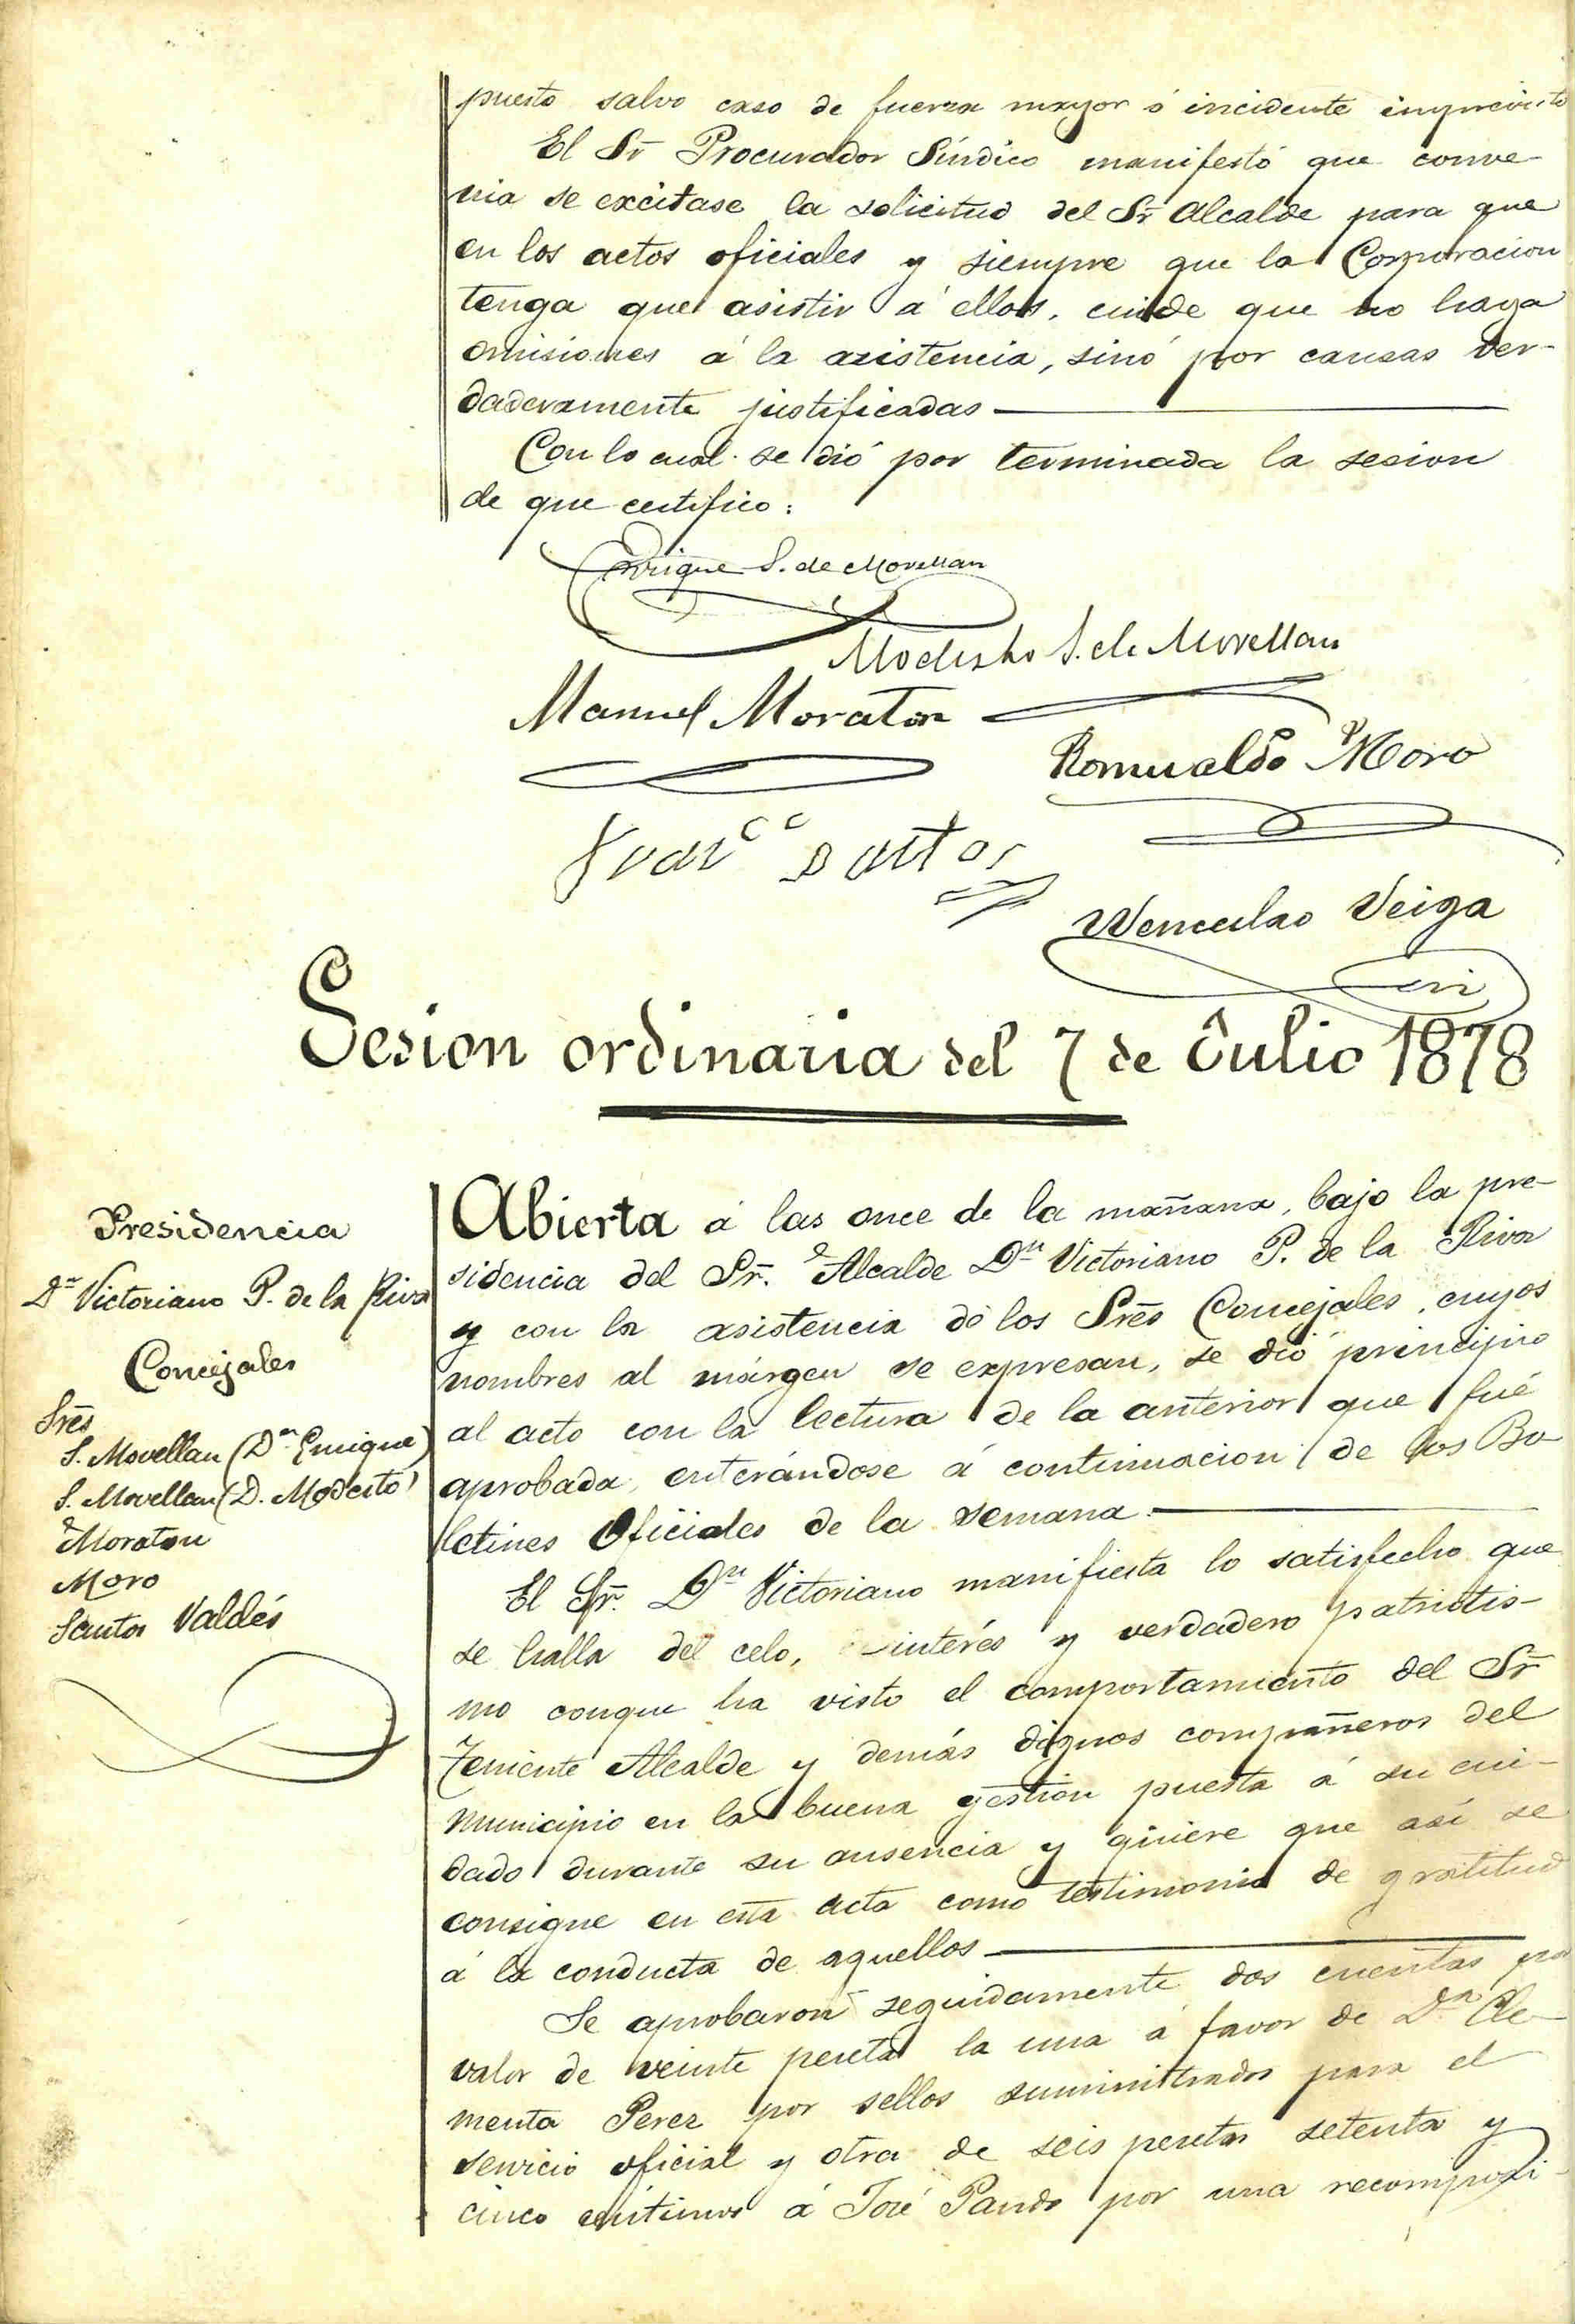 puesto salvo caso de fuerza mayor ó incidente imprevisto
El Sr Procurador Síndico manifestó que conve-
nia se excitase la solicitud del Sr Alcalde para que
en los actos oficiales y siempre que la Corporacion
tenga que asistir á ellos, cuide que no haya
omisiones á la asistencia, sinó por causas ver-
daderamente justificadas
Con lo cual se dió por terminada la sesion
de que certifico:
Enrique S. de Movellan
Modesto S. de Movellan
Manuel Moraton
Romualdo Moro
Franco Santos
Wenceslao Veiga
Sesion ordinaria del 7 de Julio 1878
Presidencia
Dn Victoriano P. de la Riva
Concejales
Sres
S. Movellan (Dn Enrique)
S. Movellan (D. Modesto)
Moraton
Moro
Santos Valdés
Abierta á las once de la mañana, bajo la pre-
sidencia del Sr. Alcalde Dn Victoriano P. de la Riva
y con la asistencia de los Sres Concejales, cuyos
nombres al márgen se expresan, se dió principio
al acto con la lectura de la anterior que fué
aprobada, enterándose á continuacion de los Bo-
letines Oficiales de la semana.
El Sr. Dn Victoriano manifiesta lo satisfecho que
se halla del celo, interés y verdadero patriotis-
mo conque ha visto el comportamiento del Sr
Teniente Alcalde y demás dignos compañeros del
Municipio en la buena gestion puesta á su cui-
dado durante su ausencia y quiere que así se
consigne en esta acta como testimonio de gratitud
á la conducta de aquellos
Se aprobaron seguidamente dos cuentas por
valor de veinte pesetas la una á favor de Da Cle-
menta Perez por sellos suministrados para el
servicio oficial y otra de seis pesetas setenta y
cinco céntimos á José Pando por una recomposi-